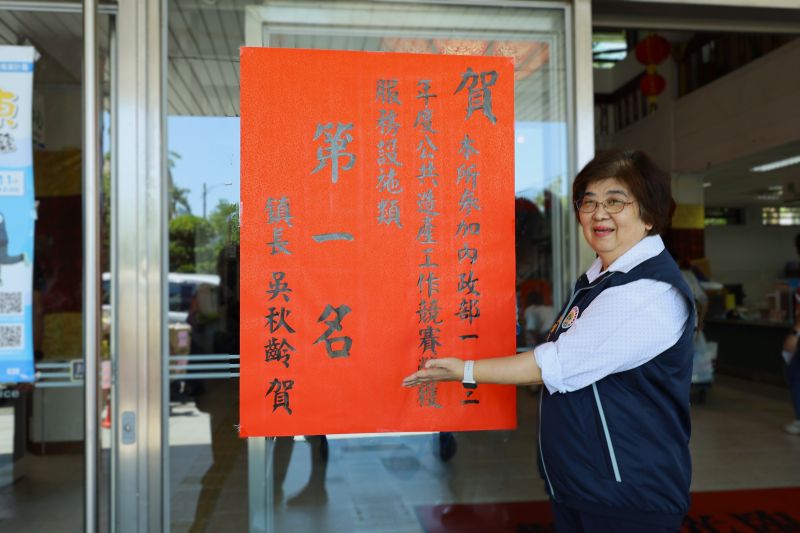 賀 本所參加內政部一一二
年度公共造產工作競賽榮獲
服務設施類
第一名
鎮長 吳秋齡 賀